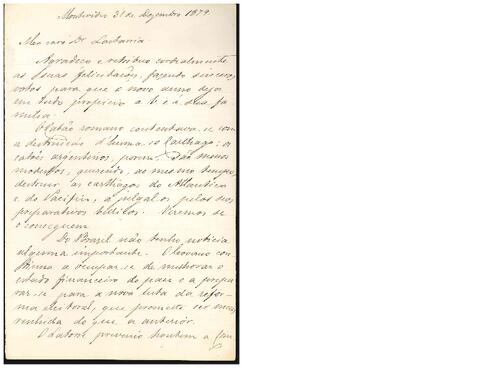 Montevideo 31 de Dezembro 1879.
Meu caro Dr. Lastarria.
Agradeço e retribuo cordialmente
as suas felicitações, fazendo sinceros
votos para que o novo anno seja
em tudo propicio a V. e á sua fa
milia.
O Catão romano contentava-se com
a destruição d'huma só Carthago: os
catões argentinos, porem, são menos
modestos, querendo, ao mesmo tempo,
destruir as carthagos do Atlantico
e do Pacifico, a julgal-os pelos seus
preparativos bellicos. Veremos se
o conseguem.
Do Brazil não tenho noticia
alguma importante. O Governo con
tinua a occupar-se de melhorar o
estado financeiro do paiz e a prepa
rar-se para a nova luta da refor
ma eleitoral, que promette ser menos
renhida do que a anterior.
O Latorre prorogou hontem a Com